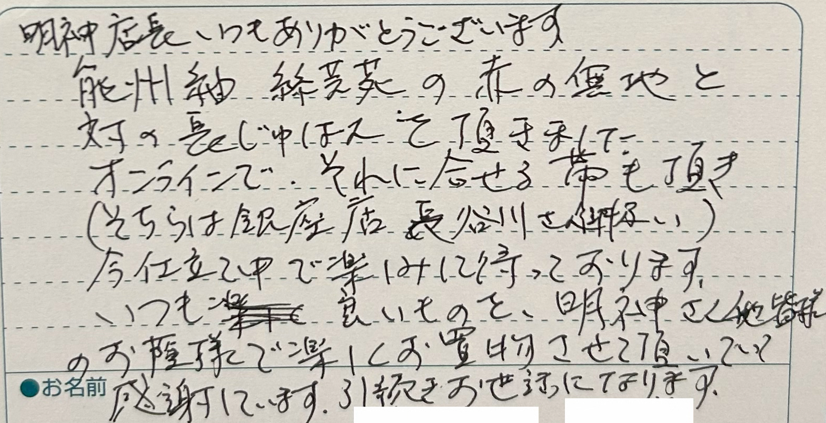 明神店長いつもありがとうございます
能州紬 絲芙蓉の赤の無地と
対の長じゅばんを頂きました
オンラインで、それに合せる帯も頂き
(そちらは銀座店 長谷川さん御扱い)
今仕立て中で楽しみに待っております。
いつも 良いものを、明神さん他皆様
のお蔭様で楽しくお買物させて頂いていて
●お名前 感謝しています。引続きお世話になります。